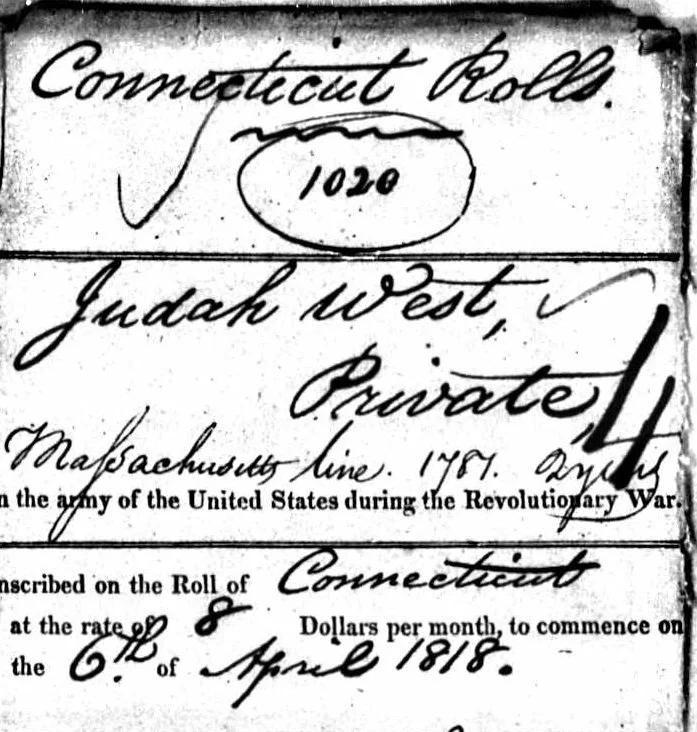 Connecticut Rolls.
1020
Judah West,
Private,
4
Massachusetts line. 1781. 2 years
n the army of the United States during the Revolutionary War.
nscribed on the Roll of Connecticut
at the rate of 8 Dollars per month, to commence on
the 6th. of April 1818.